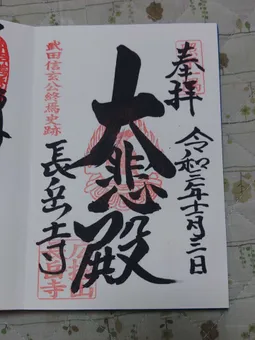 奉拝
令和元年十一月二日
大悲殿
武田信玄公終焉史跡
長岳寺